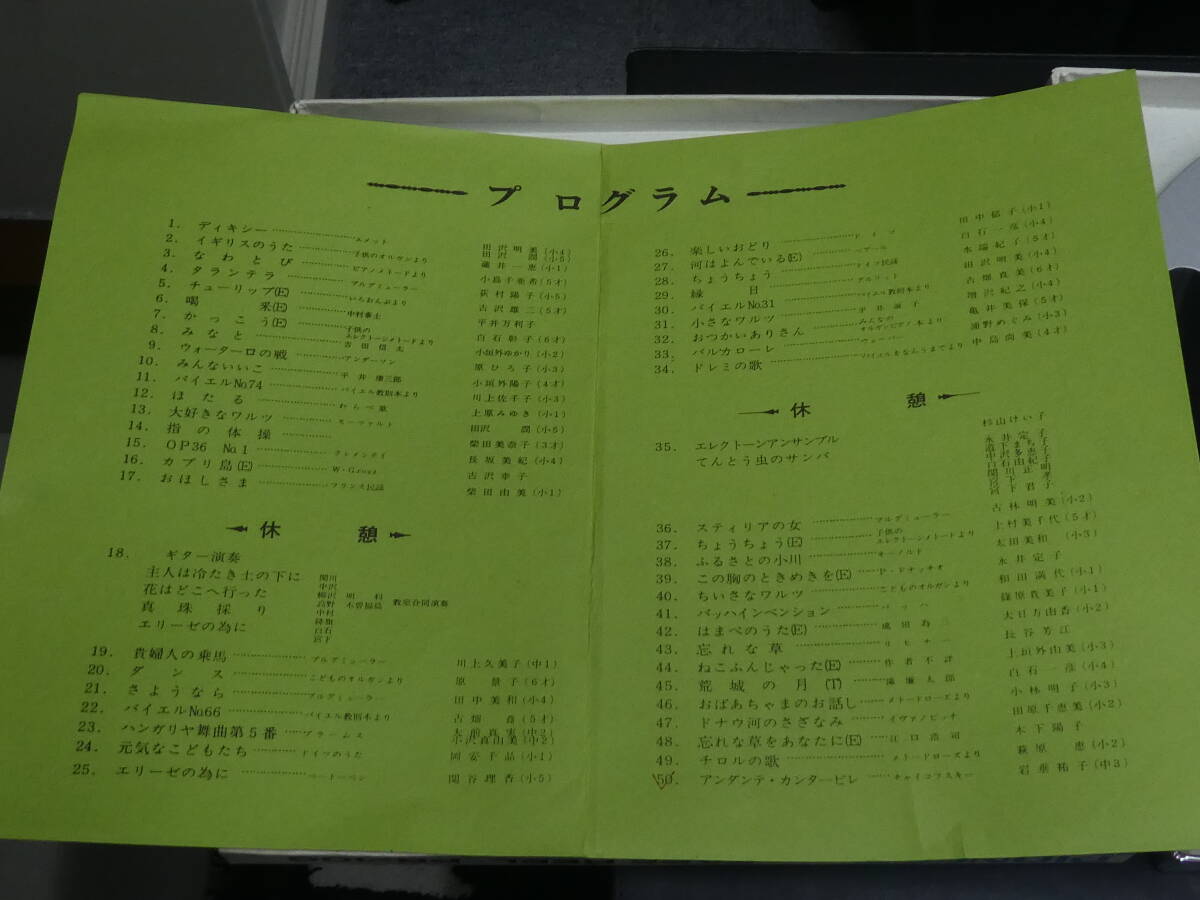 プログラム
1. ディキシー エメット 田沢明美(小4) 田沢潤(小5)
2. イギリスのうた 子供のオルガンより 蓮井一恵(小1)
3. なわとび ピアノメトードより 小島千亜希(5才)
4. タランテラ ブルグミューラー 荻村陽子(小5)
5. チューリップ(E) いろおんぷより 古沢雄二(5才)
6. 喝采(E) 中村泰士 平井万利子
7. かっこう(E) 子供のエレクトーンメトードより 白石彰子(6才)
8. みなと 吉田信太 小垣外ゆかり(小2)
9. ウォーターロの戦 アンダーソン 原ひろ子(小3)
10. みんないいこ 平井康三郎 小垣外陽子(4才)
11. バイエルNo.74 バイエル教則本より 川上佐千子(小3)
12. ほたる わらべ歌 上原みゆき(小1)
13. 大好きなワルツ モーツァルト 田沢潤(小5)
14. 指の体操 柴田美奈子(3才)
15. OP36 No.1 クレメンティ 長坂美紀(小4)
16. カプリ島(E) W・Gross 古沢幸子
17. おほしさま フランス民謡 柴田由美(小1)
休憩
18. ギター演奏
主人は冷たき土の下に 関川 中沢
花はどこへ行った 柳沢明科
真珠採り 高野木曽福島 教室合同演奏 中村
エリーゼの為に 降旗 白石 宮下
19. 貴婦人の乗馬 ブルグミューラー 川上久美子(中1)
20. ダンス こどものオルガンより 原景子(6才)
21. さようなら ブルグミューラー 田中美和(小4)
22. バイエルNo.66 バイエル教則本より 古畑斉(5才)
23. ハンガリヤ舞曲第5番 ブラームス 大前真実(中2) 小沢真由美(中2)
24. 元気なこどもたち ドイツのうた 岡安千晶(小1)
25. エリーゼの為に ベートーベン 関谷理香(小5)
26. 楽しいおどり ドイツ 田中郁子(小1)
27. 河はよんでいる(E) ベアール 白石一彦(小4)
28. ちょうちょう ドイツ民謡 水端紀子(5才)
29. 縁日 グルリット 田沢明美(小4)
30. バイエルNo.31 バイエル教則本より 古畑真美(6才)
31. 小さなワルツ 平井淑子 増沢紀之(小4)
32. おつかいありさん みんなのオルガンピアノ本より 亀井美保(5才)
33. バルカローレ ウェーバー 浦野めぐみ(小3)
34. ドレミの歌 バイエルをならうまでより 中島尚美(4才)
休憩
35. エレクトーンアンサンブル 杉山けい子
てんとう虫のサンバ
36. スティリアの女 ブルグミューラー 古林明美(小2)
37. ちょうちょう(E) 子供のエレクトーンメトードより 上村美千代(5才)
38. ふるさとの小川 オーノルド 太田美和(小3)
39. この胸のときめきを(E) P・ドナッヂオ 永井定子
40. ちいさなワルツ こどものオルガンより 和田満代(小1)
41. バッハインベンション バッハ 篠原貴美子(小1)
42. はまべのうた(E) 成田為三 大日方由香(小2)
43. 忘れな草 リヒナー 長谷芳江
44. ねこふんじゃった(E) 作者不詳 上垣外由美(小3)
45. 荒城の月(T) 滝廉太郎 白石一彦(小4)
46. おばあちゃまのお話し メトードローズより 小林明子(小3)
47. ドナウ河のさざなみ イヴァノビッチ 田原千恵美(小2)
48. 忘れな草をあなたに(E) 江口浩司 木下陽子
49. チロルの歌 メトードローズより 萩原恵(小2)
50. アンダンテ・カンタービレ チャイコフスキー 岩垂祐子(中3)